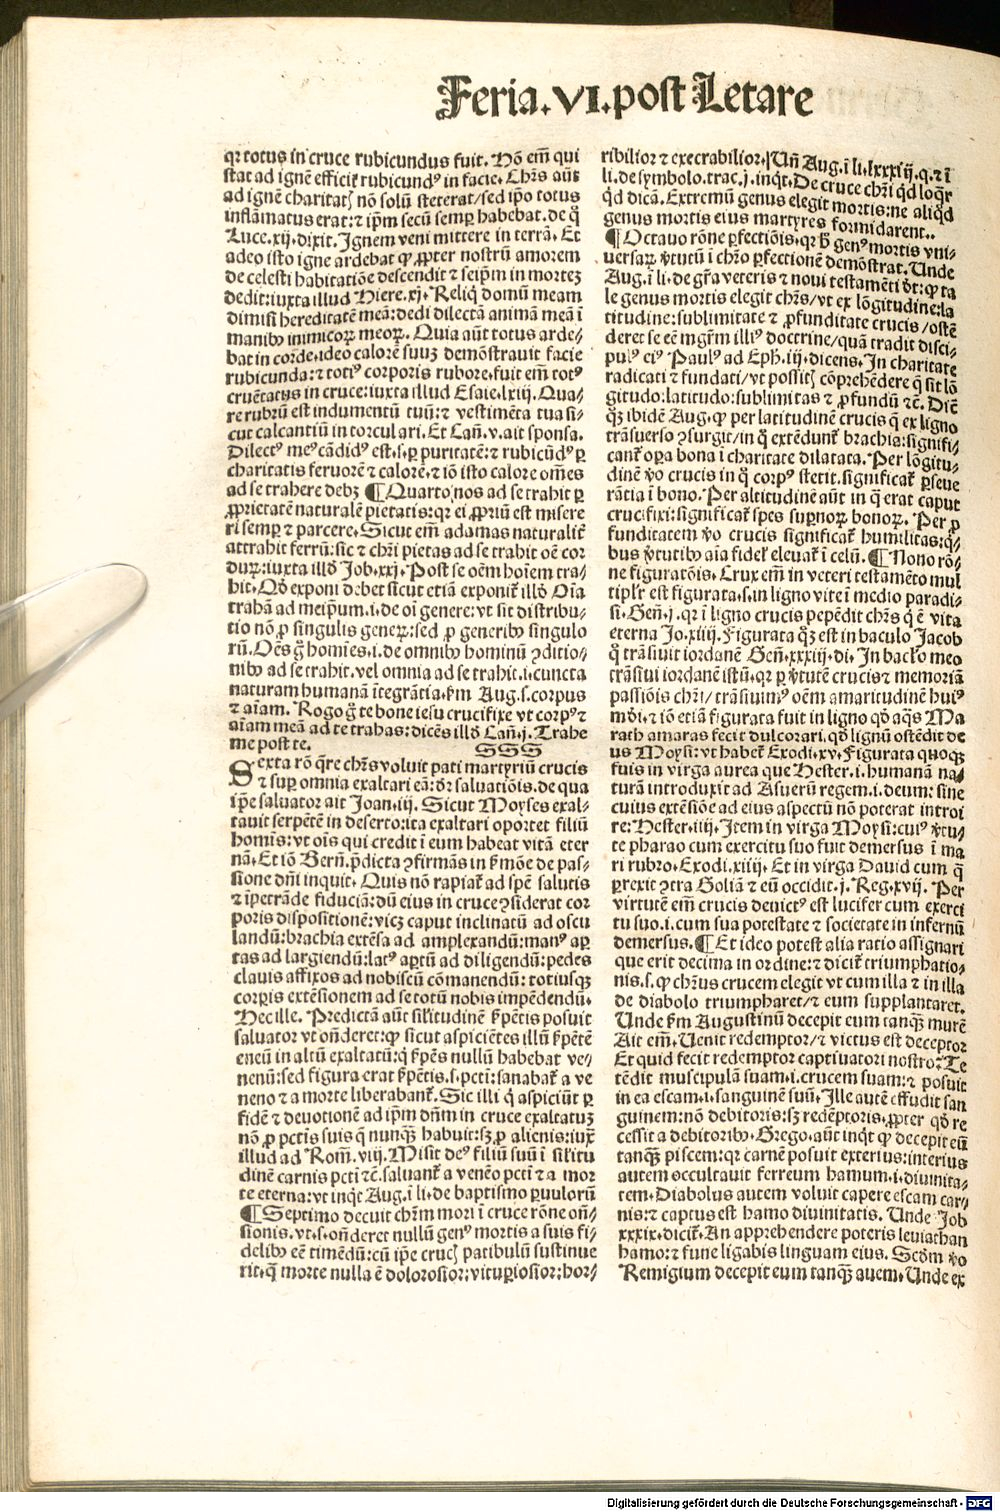 Feria.VI.post Letare
qꝛ totus in cruce rubicundus fuit. Nõ em̃ qui
stat ad ignẽ efficit᷑ rubicundꝰ in facie. Chr̃s aũt
ad ignẽ charitatꝭ nõ solũ steterat/sed ip̃o totus
inflãmatus erat:⁊ ip̃m secũ semꝑ habebat.de q̊
Luce.xij.dixit. Ignem veni mittere in terrã. Et
adeo isto igne ardebat ꝙ ꝓpter nostrũ amorem
de celesti habitatiõe descendit ⁊ seip̃m in mortez
dedit:iuxta illud Hiere.xj. Reliq̃ domũ meam
dimisi hereditatẽ meã:dedi dilectã animã meã ĩ
manibꝰ inimicoꝝ meoꝝ. Quia aũt totus arde⸗
bat in corde.ideo calorẽ suuz demõstrauit facie
rubicunda:⁊ totiꝰ corporis rubore.fuit em̃ totꝰ
cruẽtatus in cruce:iuxta illud Esaie.lxiij. Qua⸗
re rubrũ est indumentũ tuũ:⁊ vestimẽta tua si⸗
cut calcantiũ in torculari. Et Cañ.v.ait sponsa.
Dilectꝰ meꝰ cãdidꝰ est.s.ꝑ puritatẽ:⁊ rubicũdꝰ ꝑ
charitatis feruorẽ ⁊ calorẽ.⁊ iõ isto calore om̃es
ad se trahere debꝫ ¶Quarto nos ad se trahit ꝑ
ꝓprietatẽ naturalẽ pietatis:qꝛ ei ꝓpriũ est misere
ri semꝑ ⁊ parcere. Sicut em̃ adamas naturalit᷑
attrahit ferrũ:sic ⁊ chr̃i pietas ad se trahit oẽ cor
duꝝ:iuxta illđ Job.xxj. Post se oẽm hoĩem tra⸗
hit. Qđ exponi debet sicut etiã exponit᷑ illđ Oĩa
trahã ad meip̃um.i.de oĩ genere:vt sit distribu⸗
tio nõ ꝓ singulis geneꝝ:sed ꝓ generibꝰ singulo
rũ. Oẽs g̊ homĩes.i.de omnibꝰ hominũ ꝯditio⸗
nibꝰ ad se trahit.vel omnia ad se trahit.i.cuncta
naturam humanã ĩtegrãtia.ẜm Aug.s.corpus
⁊ aĩam. Rogo g̊ te bone iesu crucifixe vt corpꝰ ⁊
aĩam meã ad te trahas:dicẽs illđ Cañ.j. Trahe
me post te. SSS
Sexta rõ q̃re chr̃s voluit pati martyriũ crucis
⁊ suꝑ omnia exaltari eã:dr̃ saluatiõis.de qua
ip̃e saluator ait Joan.iij. Sicut Moyses exal⸗
tauit serpẽtẽ in deserto:ita exaltari oportet filiũ
homĩs:vt oĩs qui credit ĩ eum habeat vitã eter
nã. Et iõ Berñ.p̃dicta ꝯfirmãs in ẜmõe de pas⸗
sione dñi inquit. Quis nõ rapiat᷑ ad spẽ salutis
⁊ ĩpetrãde fiduciã:dũ eius in cruce ꝯsiderat cor
poris dispositionẽ:vicꝫ caput inclinatũ ad oscu
landũ:brachia extẽsa ad amplexandũ:manꝰ aꝑ
tas ad largiendũ:latꝰ aꝑtũ ad diligendũ:pedes
clauis affixos ad nobiscũ cõmanendũ: totiusqꝫ
corꝑis extẽsionem ad se totũ nobis impẽdendũ.
Hec ille. Predictã aũt sil̃itudinẽ ẜpẽtis posuit
saluator vt oñderet:ꝙ sicut aspiciẽtes illũ ẜpẽtẽ
eneũ in altũ exaltatũ:q̇ ẜpẽs nullũ habebat ve⸗
nenũ:sed figura erat ẜpẽtis.s.pctĩ:sanabat᷑ a ve
neno ⁊ a morte liberabant᷑. Sic illi q̇ aspiciũt ꝑ
fidẽ ⁊ deuotionẽ ad ip̃m dñm in cruce exaltatuz
nõ ꝓ pctĩs suis q̃ nunqꝫ habuit:sꝫ ꝓ alienis:iux̃
illud ad Rom̃.viij. Misit deꝰ filiũ suũ ĩ sil̃itu
dinẽ carnis pctĩ ⁊c̃.saluant᷑ a venẽo pctĩ ⁊ a mor
te eterna:vt inq̇t Aug.ĩ li.de baptismo ꝑuulorũ
¶Septimo decuit chr̃m mori ĩ cruce rõne oñ⸗
sionis.vt.s.oñderet nullũ genꝰ mortis a suis fi⸗
delibꝰ eẽ timẽdũ:cũ ip̃e crucꝭ patibulũ sustinue
rit.q̃ morte nulla ẽ dolorosior:vituꝑiosior:hor⸗
ribilior ⁊ execrabilior. Uñ Aug.ĩ li.lxxxiij.q.⁊ ĩ
li.de symbolo.trac.j.inq̇t. De cruce chr̃i qđ loq̃r
qđ dicã. Extremũ genus elegit mortis:ne aliq̇d
genus mortis eius martyres formidarent..
¶Octauo rõne ꝑfectiõis.qꝛ h̊ genꝰ mortis vni⸗
uersaꝝ ṽtutũ ĩ chr̃o ꝑfectionẽ demõstrat. Unde
Aug.ĩ li.de gr̃a veteris ⁊ noui testamẽti dt̃:ꝙ ta
le genus mortis elegit chr̃s/vt ex lõgitudine:la
titudine:sublimitate ⁊ ꝓfunditate crucis/ostẽ
deret se eẽ mgr̃m illiꝰ doctrine/quã tradit disci⸗
pulꝰ eiꝰ Paulꝰ ad Eph.iij.dicens. In charitate
radicati ⁊ fundati/vt possitꝭ cõprehẽdere q̃ sit lõ
gitudo:latitudo:sublimitas ⁊ ꝓfundũ ⁊c̃. Dic̃
qꝫ ibidẽ Aug.ꝙ per latitudinẽ crucis q̃ ex ligno
trãsuerso ꝯsurgit/in q̊ extẽdunt᷑ brachia:signifi⸗
cant᷑ oꝑa bona ĩ charitate dilatata. Per lõgitu⸗
dinẽ ṽo crucis in q̊ corpꝰ stetit.significat᷑ ꝑseue
rãtia ĩ bono. Per altitudinẽ aũt in q̃ erat caput
crucifixi:significat᷑ spes suꝑnoꝝ bonoꝝ. Per ꝓ
funditatem ṽo crucis significat᷑ humilitas:q̇⸗
bus ṽtutibꝰ aĩa fidel̃ eleuat᷑ ĩ celũ. ¶Nono rõ⸗
ne figuratõis. Crux em̃ in veteri testamẽto mul
tipl̃r est figurata.s.in ligno vite ĩ medio paradi⸗
si. Geñ.j.qꝛ ĩ ligno crucis pepẽdit chr̃s q̇ ẽ vita
eterna Jo.xiiij. Figurata qꝫ est in baculo Jacob
q̊ trãsiuit iordanẽ Geñ.xxxij.di. In bacl̃o meo
trãsiui iordanẽ istũ.qꝛ ꝑ ṽtutẽ crucis ⁊ memoriã
passiõis chr̃i/ trãsiuimꝰ oẽm amaritudinẽ huiꝰ
mũdi.⁊ iõ etiã figurata fuit in ligno qđ aq̃s Ma
rath amaras fecit dulcorari.qđ lignũ ostẽdit de
us Moysi:vt habet᷑ Exodi.xv. Figurata quoqꝫ
fuis in virga aurea que Hester.i.humanã na⸗
turã introduxit ad Asuerũ regem.i.deum: sine
cuius extẽsiõe ad eius aspectũ nõ poterat introi
re: Hester.iiij. Item in virga Moysi:cuiꝰ ṽtu⸗
te pharao cum exercitu suo fuit demersus ĩ ma
ri rubro. Exodi.xiiij. Et in virga Dauid cum q̃
ꝑrexit ꝯtra Goliã ⁊ eũ occidit.j. Reg.xvij. Per
virtutẽ em̃ crucis deuictꝰ est lucifer cum exerci
tu suo.i.cum sua potestate ⁊ societate in infernũ
demersus. ¶Et ideo potest alia ratio assignari
que erit decima in ordine:⁊ dicit᷑ triumphatio⸗
nis.s.ꝙ chr̃us crucem elegit vt cum illa ⁊ in illa
de diabolo triumpharet/⁊ eum supplantaret.
Unde ẜm Augustinũ decepit eum tanqꝫ murẽ
Ait em̃. Uenit redemptor/⁊ victus est deceptor
Et quid fecit redemptor captiuatori nostro? Te
tẽdit muscipulã suam.i.crucem suam:⁊ posuit
in ea escam.i.sanguinẽ suũ. Ille autẽ effudit san
guinem:nõ debitoris:sꝫ redẽptoris.ꝓpter qđ re
cessit a debitoribꝰ. Grego.aũt inq̇t ꝙ decepit eũ
tanqꝫ piscem:qꝛ carnẽ posuit exterius:interius
autem occultauit ferreum hamum.i.diuinita⸗
tem. Diabolus autem voluit capere escam car⸗
nis:⁊ captus est hamo diuinitatis. Unde Job
xxxix.dicit᷑. An apprehendere poteris leuiathan
hamo:⁊ fune ligabis linguam eius. Scđm ṽo
Remigium decepit eum tanqꝫ auem. Unde ex
Digitalisierung gefördert durch die Deutsche Forschungsgemeinschaft - DFG